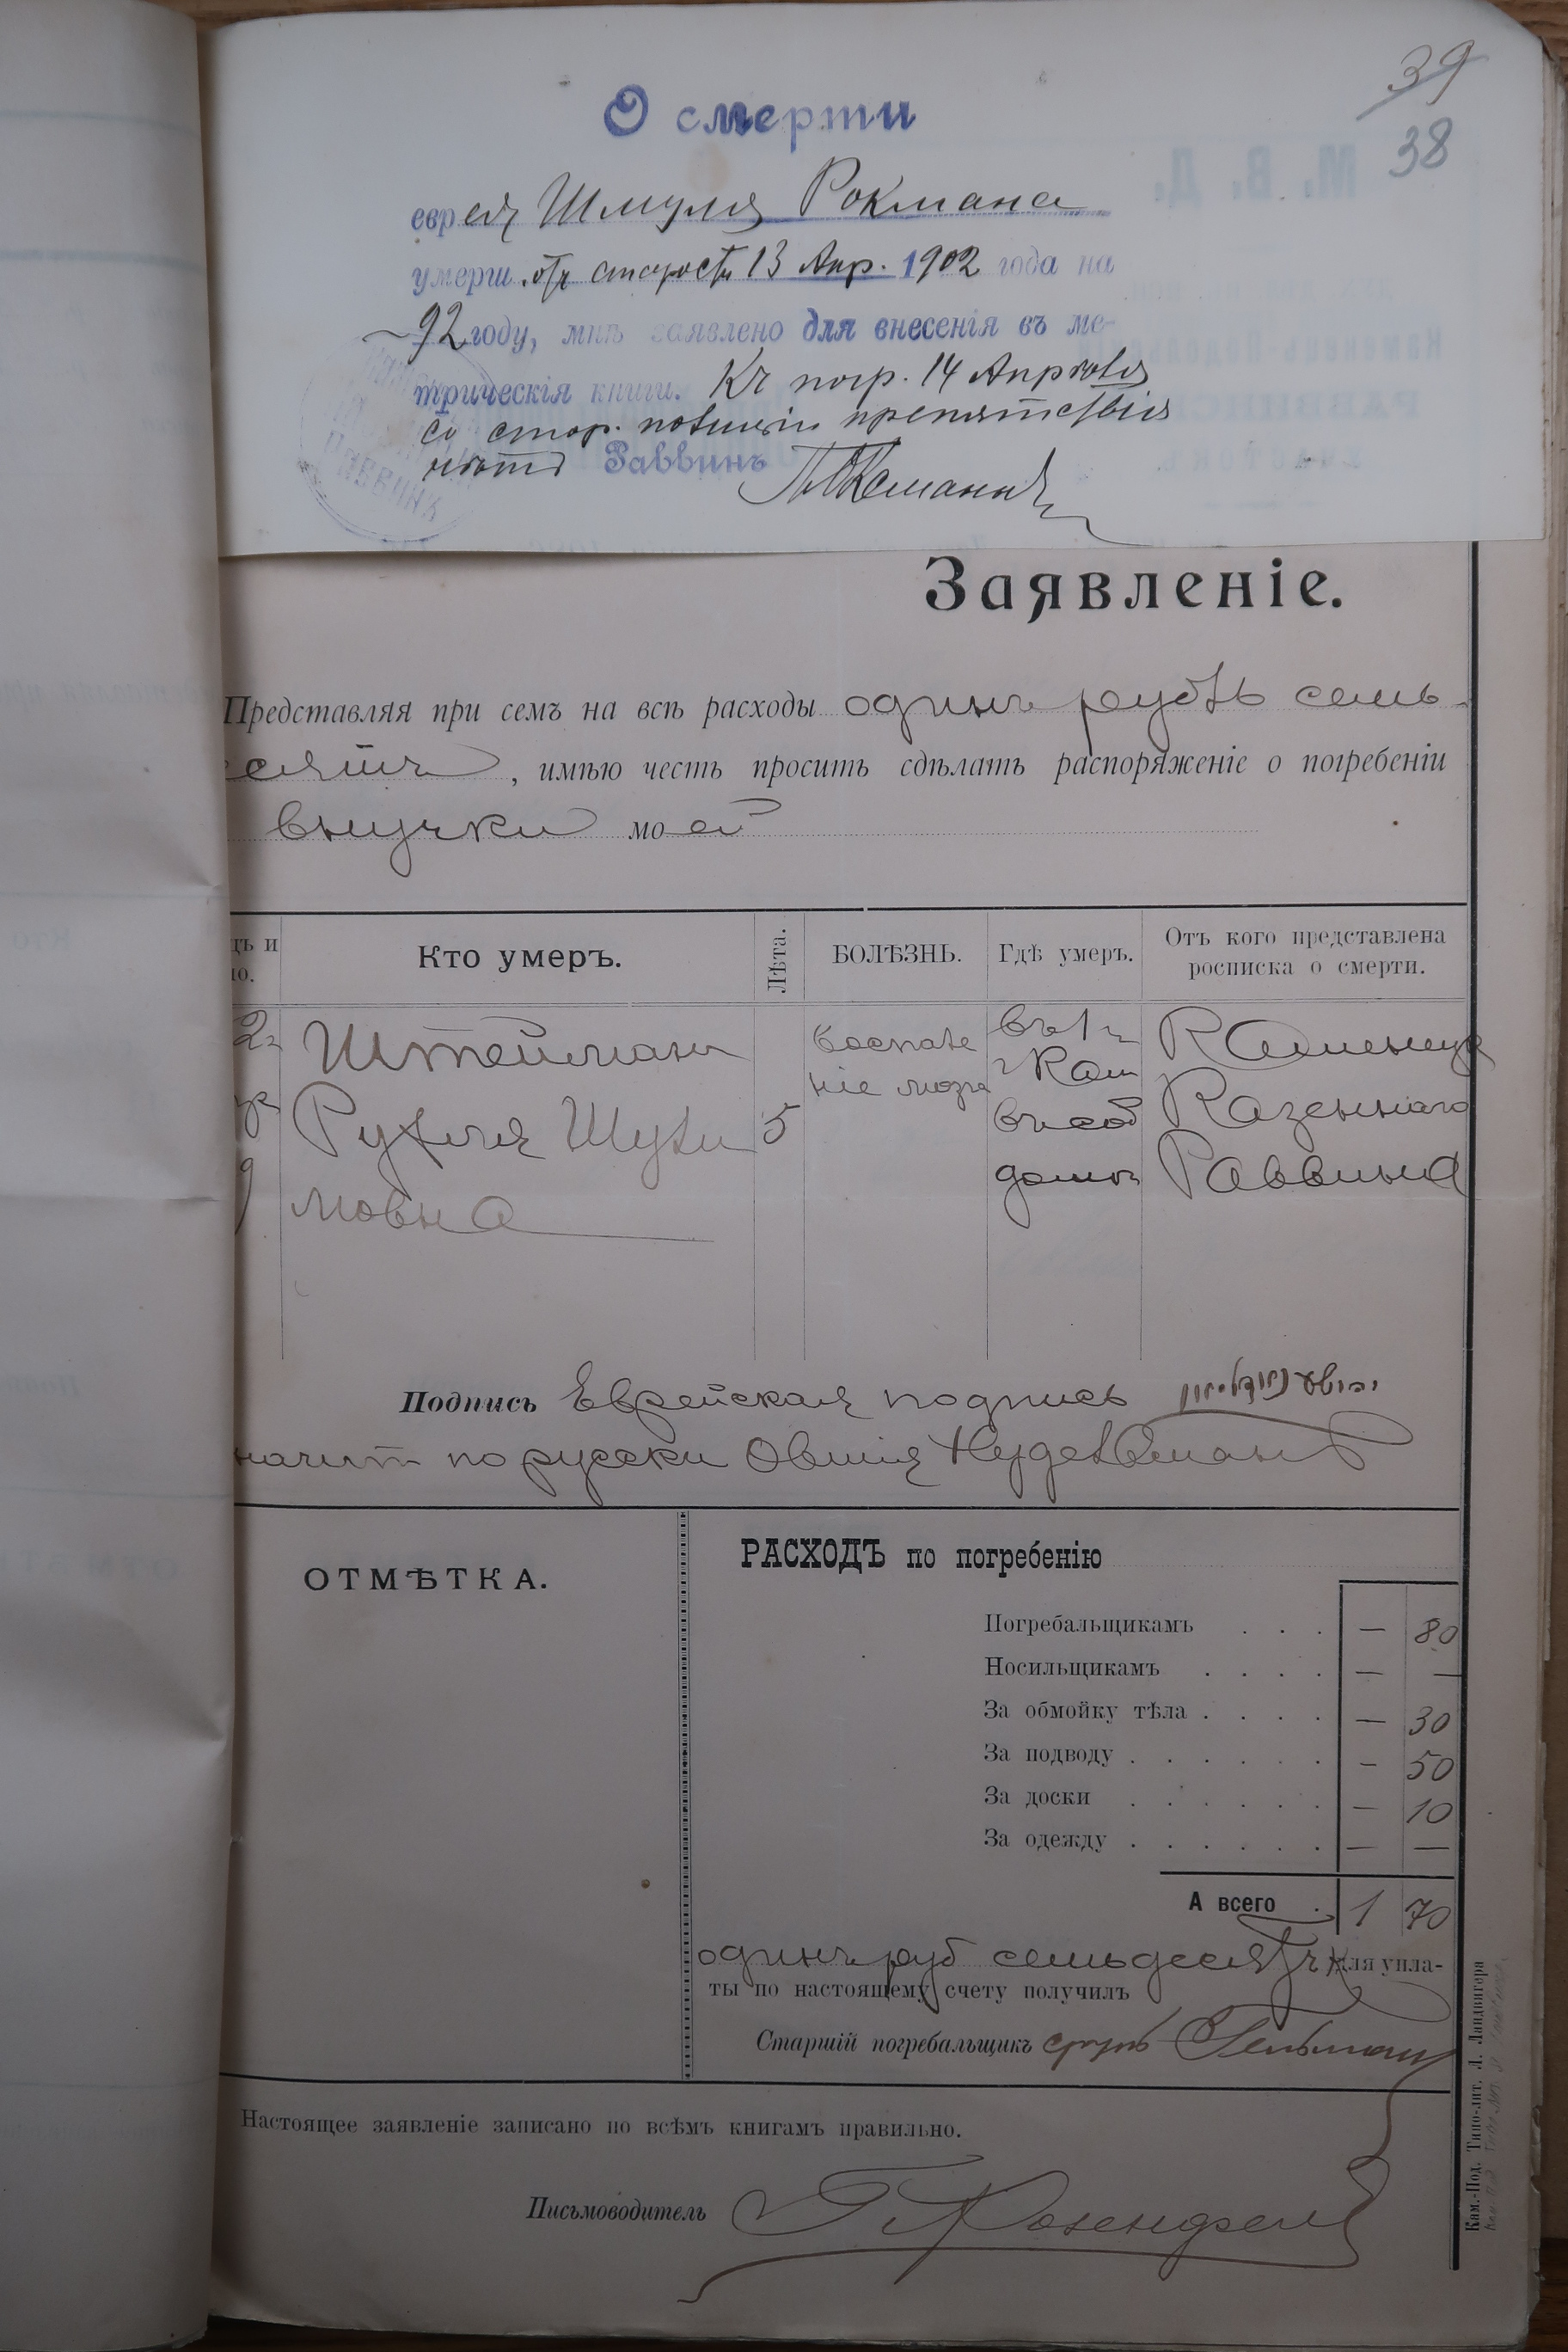 39
38
О смерти
еврея Шмуля Рокмана
умерш. отъ старости 13 Апр. 1902 года на
92 году, мнѣ заявлено для внесенія въ ме-
трическія книги. Къ погр. 14 Апрѣля
со стор. полиціи препятствія
нѣтъ Раввинъ
Заявленіе.
Представляя при семъ на всѣ расходы одинъ рубль семь-
сятъ, имѣю честь просить сдѣлать распоряженіе о погребеніи
внучки моей
ъ и
о.
Кто умеръ.
Лѣта.
БОЛѢЗНЬ.
Гдѣ умеръ.
Отъ кого представлена
росписка о смерти.
Штейманъ
Рухля Шули
мовна
5
Воспале
ніе мозга
въ г
г Кам
въ соб
домѣ
Каменец
Казеннаго
Раввина
Подпись Еврейская подпись
начит по русски Овшія Нудельманъ
ОТМѢТКА.
РАСХОДЪ по погребенію
Погребальщикамъ . . . — 80
Носильщикамъ . . . . — —
За обмойку тѣла . . . . — 30
За подводу . . . . . . — 50
За доски . . . . . . — 10
За одежду . . . . . . — —
А всего . 1 70
одинъ руб семьдесятъ для упла-
ты по настоящему счету получилъ
Старшій погребальщикъ
Настоящее заявленіе записано по всѣмъ книгамъ правильно.
Письмоводитель Г Розенфельд
Кам.-Под. Типо-лит. Л. Ландвигера